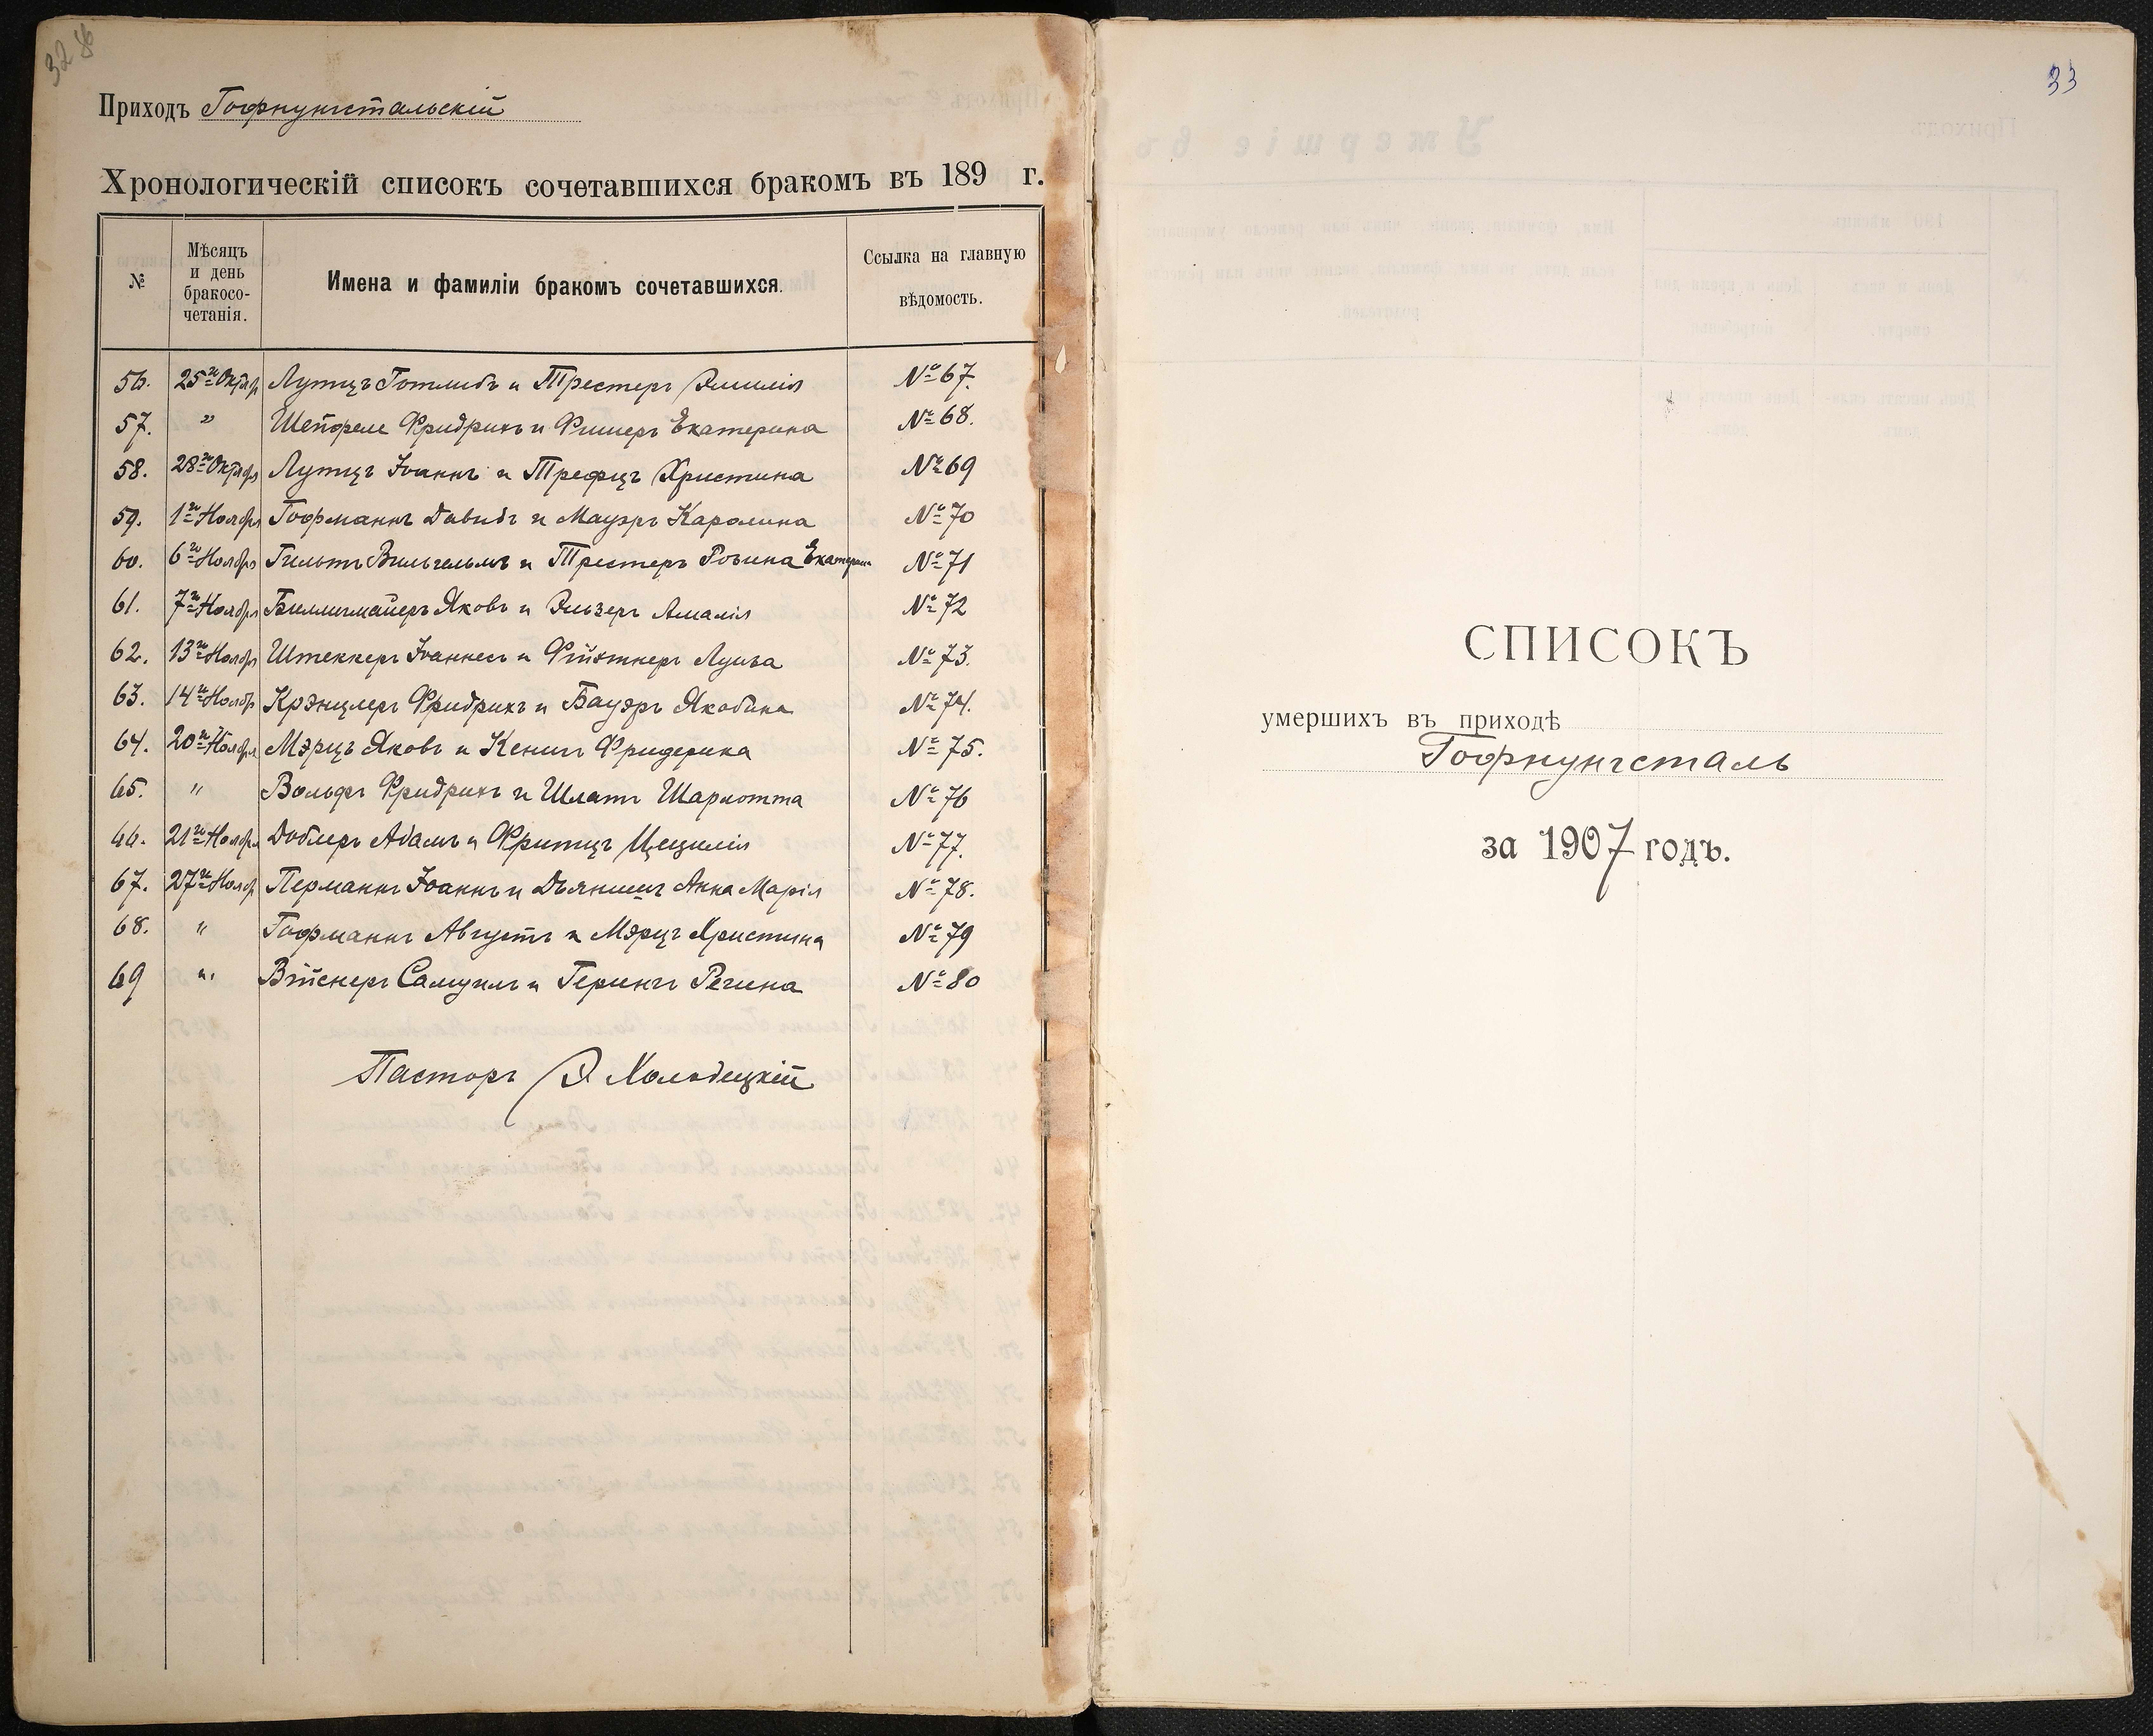 32 об
Приходъ Гофнунгстальскій
Хронологическій списокъ сочетавшихся бракомъ въ 189 г.
№
Мѣсяцъ и день бракосо- четанія.
Имена и фамиліи бракомъ сочетавшихся.
Ссылка на главную вѣдомость.
56. 25го Октяб Лутцъ Готлибъ и Трестеръ Эмилія № 67.
57. " Шейфеле Фридрихъ и Фишеръ Екатерина № 68.
58. 28го Октября Лутцъ Іоаннъ и Трефцъ Христина № 69
59. 1го Ноября Гофманнъ Давидъ и Мауэръ Каролина № 70
60. 6го Ноября Гильтъ Вильгельмъ и Трестеръ Розина Екатерина № 71
61. 7го Ноября Биллигмайеръ Яковъ и Эльзеръ Амалія № 72
62. 13го Ноября Штеккеръ Іоаннесъ и Фейхтнеръ Луиза № 73.
63. 14го Ноября Крэнцлеръ Фридрихъ и Бауэръ Якобина № 74.
64. 20го Ноября Мэрцъ Яковъ и Кенигъ Фридерика № 75.
65. " Вольфъ Фридрихъ и Шлатъ Шарлотта № 76
66. 21го Ноября Доблеръ Адамъ и Фритцъ Цецилія № 77.
67. 27го Нояб Перманнъ Іоаннъ и Анна Марія № 78.
68. " Гофманнъ Августъ и Мэрцъ Христина № 79
69 " Вейснеръ Самуилъ и Герингъ Регина № 80
Пасторъ Э Холодецкій
33
СПИСОКЪ
умершихъ въ приходѣ
Гофнунгсталь
за 1907 годъ.